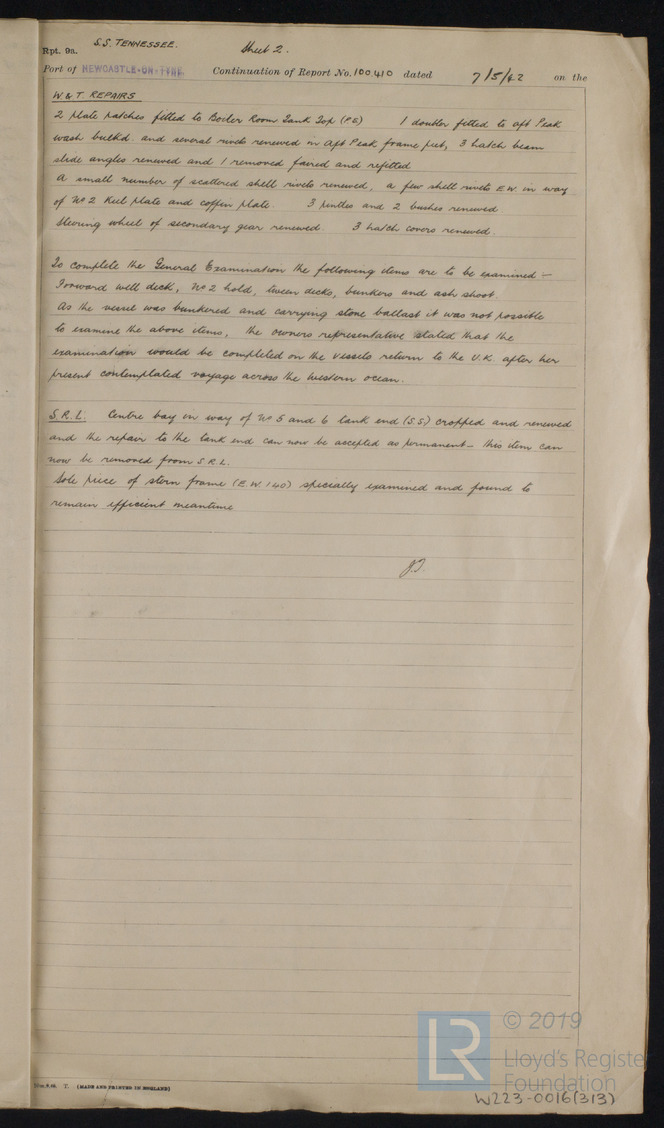 S.S. TENNESSEE. Sheet 2.
Rpt. 9a.
Port of NEWCASTLE-ON-TYNE. Continuation of Report No. 100,410 dated 7/5/42 on the
W & T REPAIRS
2 plate patches fitted to Boiler Room Tank Top (PS) 1 doubler fitted to aft Peak
wash bulkd. and several rivets renewed in Aft Peak frame feet, 3 hatch beam
slide angles renewed and 1 removed faired and refitted
A small number of scattered shell rivets renewed, a few shell rivets E W in way
of No 2 Keel plate and coffin plate. 3 pintles and 2 bushes renewed
Steering wheel of secondary gear renewed. 3 hatch covers renewed.
To complete the General Examination the following items are to be examined –
Forward well deck, No 2 hold, tween decks, bunkers and ash shoot.
As the vessel was bunkered and carrying stone ballast it was not possible
to examine the above items, the owners representative stated that the
examination would be completed on the vessels return to the U.K. after her
present contemplated voyage across the Western ocean.
S.R.L. Centre bay in way of No 5 and 6 tank end (S.S) cropped and renewed
and the repair to the tank end can now be accepted as permanent – this item can
now be removed from S.R.L.
Sole piece of stern frame (E.W. 1 40) specially examined and found to
remain efficient meantime
T. (MADE AND PRINTED IN ENGLAND)
LR © 2019
Lloyd's Registe
Foundation
W223-0016(313)